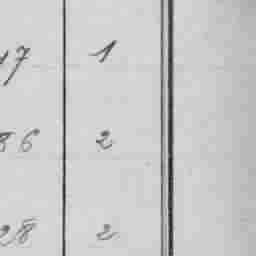 17 1
86 2
28 2